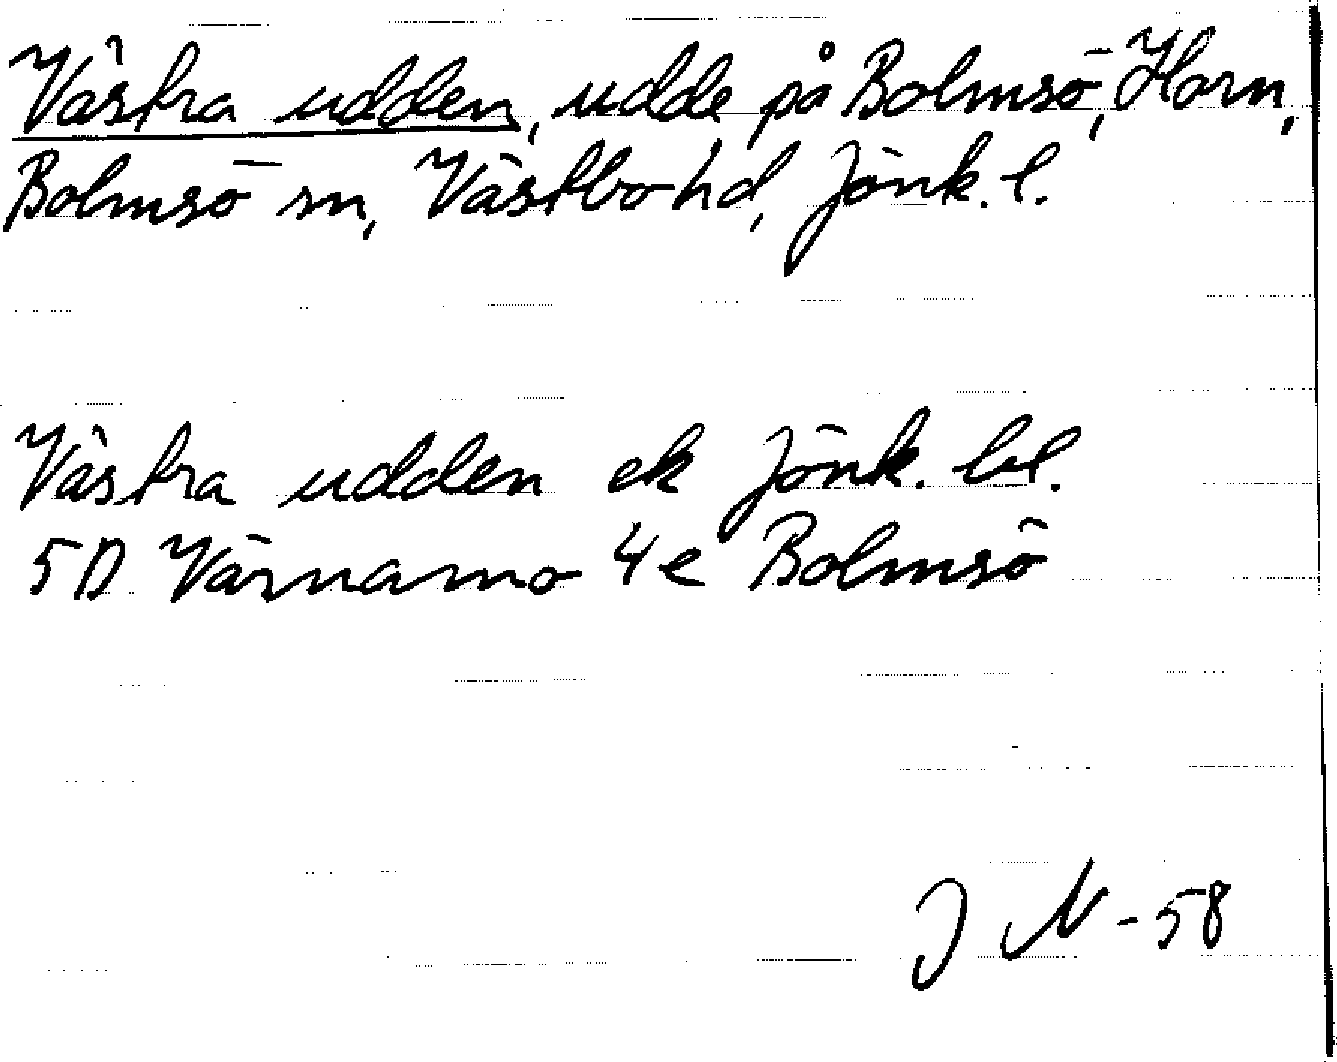 Västra udden, udde på Bolmsö, Horn,
Bolmsö sn, Västbo hd, Jönk. l.
Västra udden ek Jönk. bl.
5D Värnamo 4e Bolmsö
J N -58